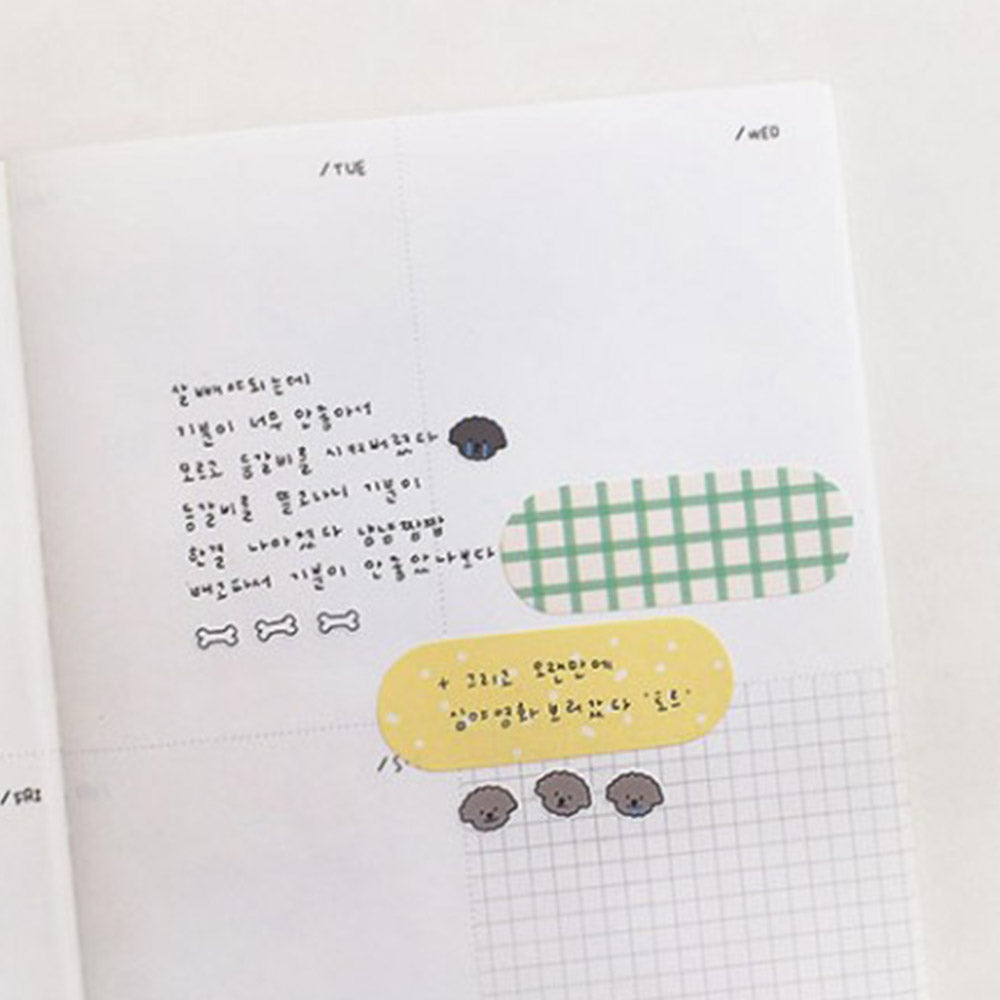 /TUE
/WED
살 빼야되는데
기분이 너무 안좋아서
모르고 등갈비를 시켜버렸다
등갈비를 뜯고나니 기분이
한결 나아졌다 냠냠짭짭
배고파서 기분이 안좋았나보다
+ 그리고 오랜만에
심야영화 보러갔다 '도도'
/S
/FRI